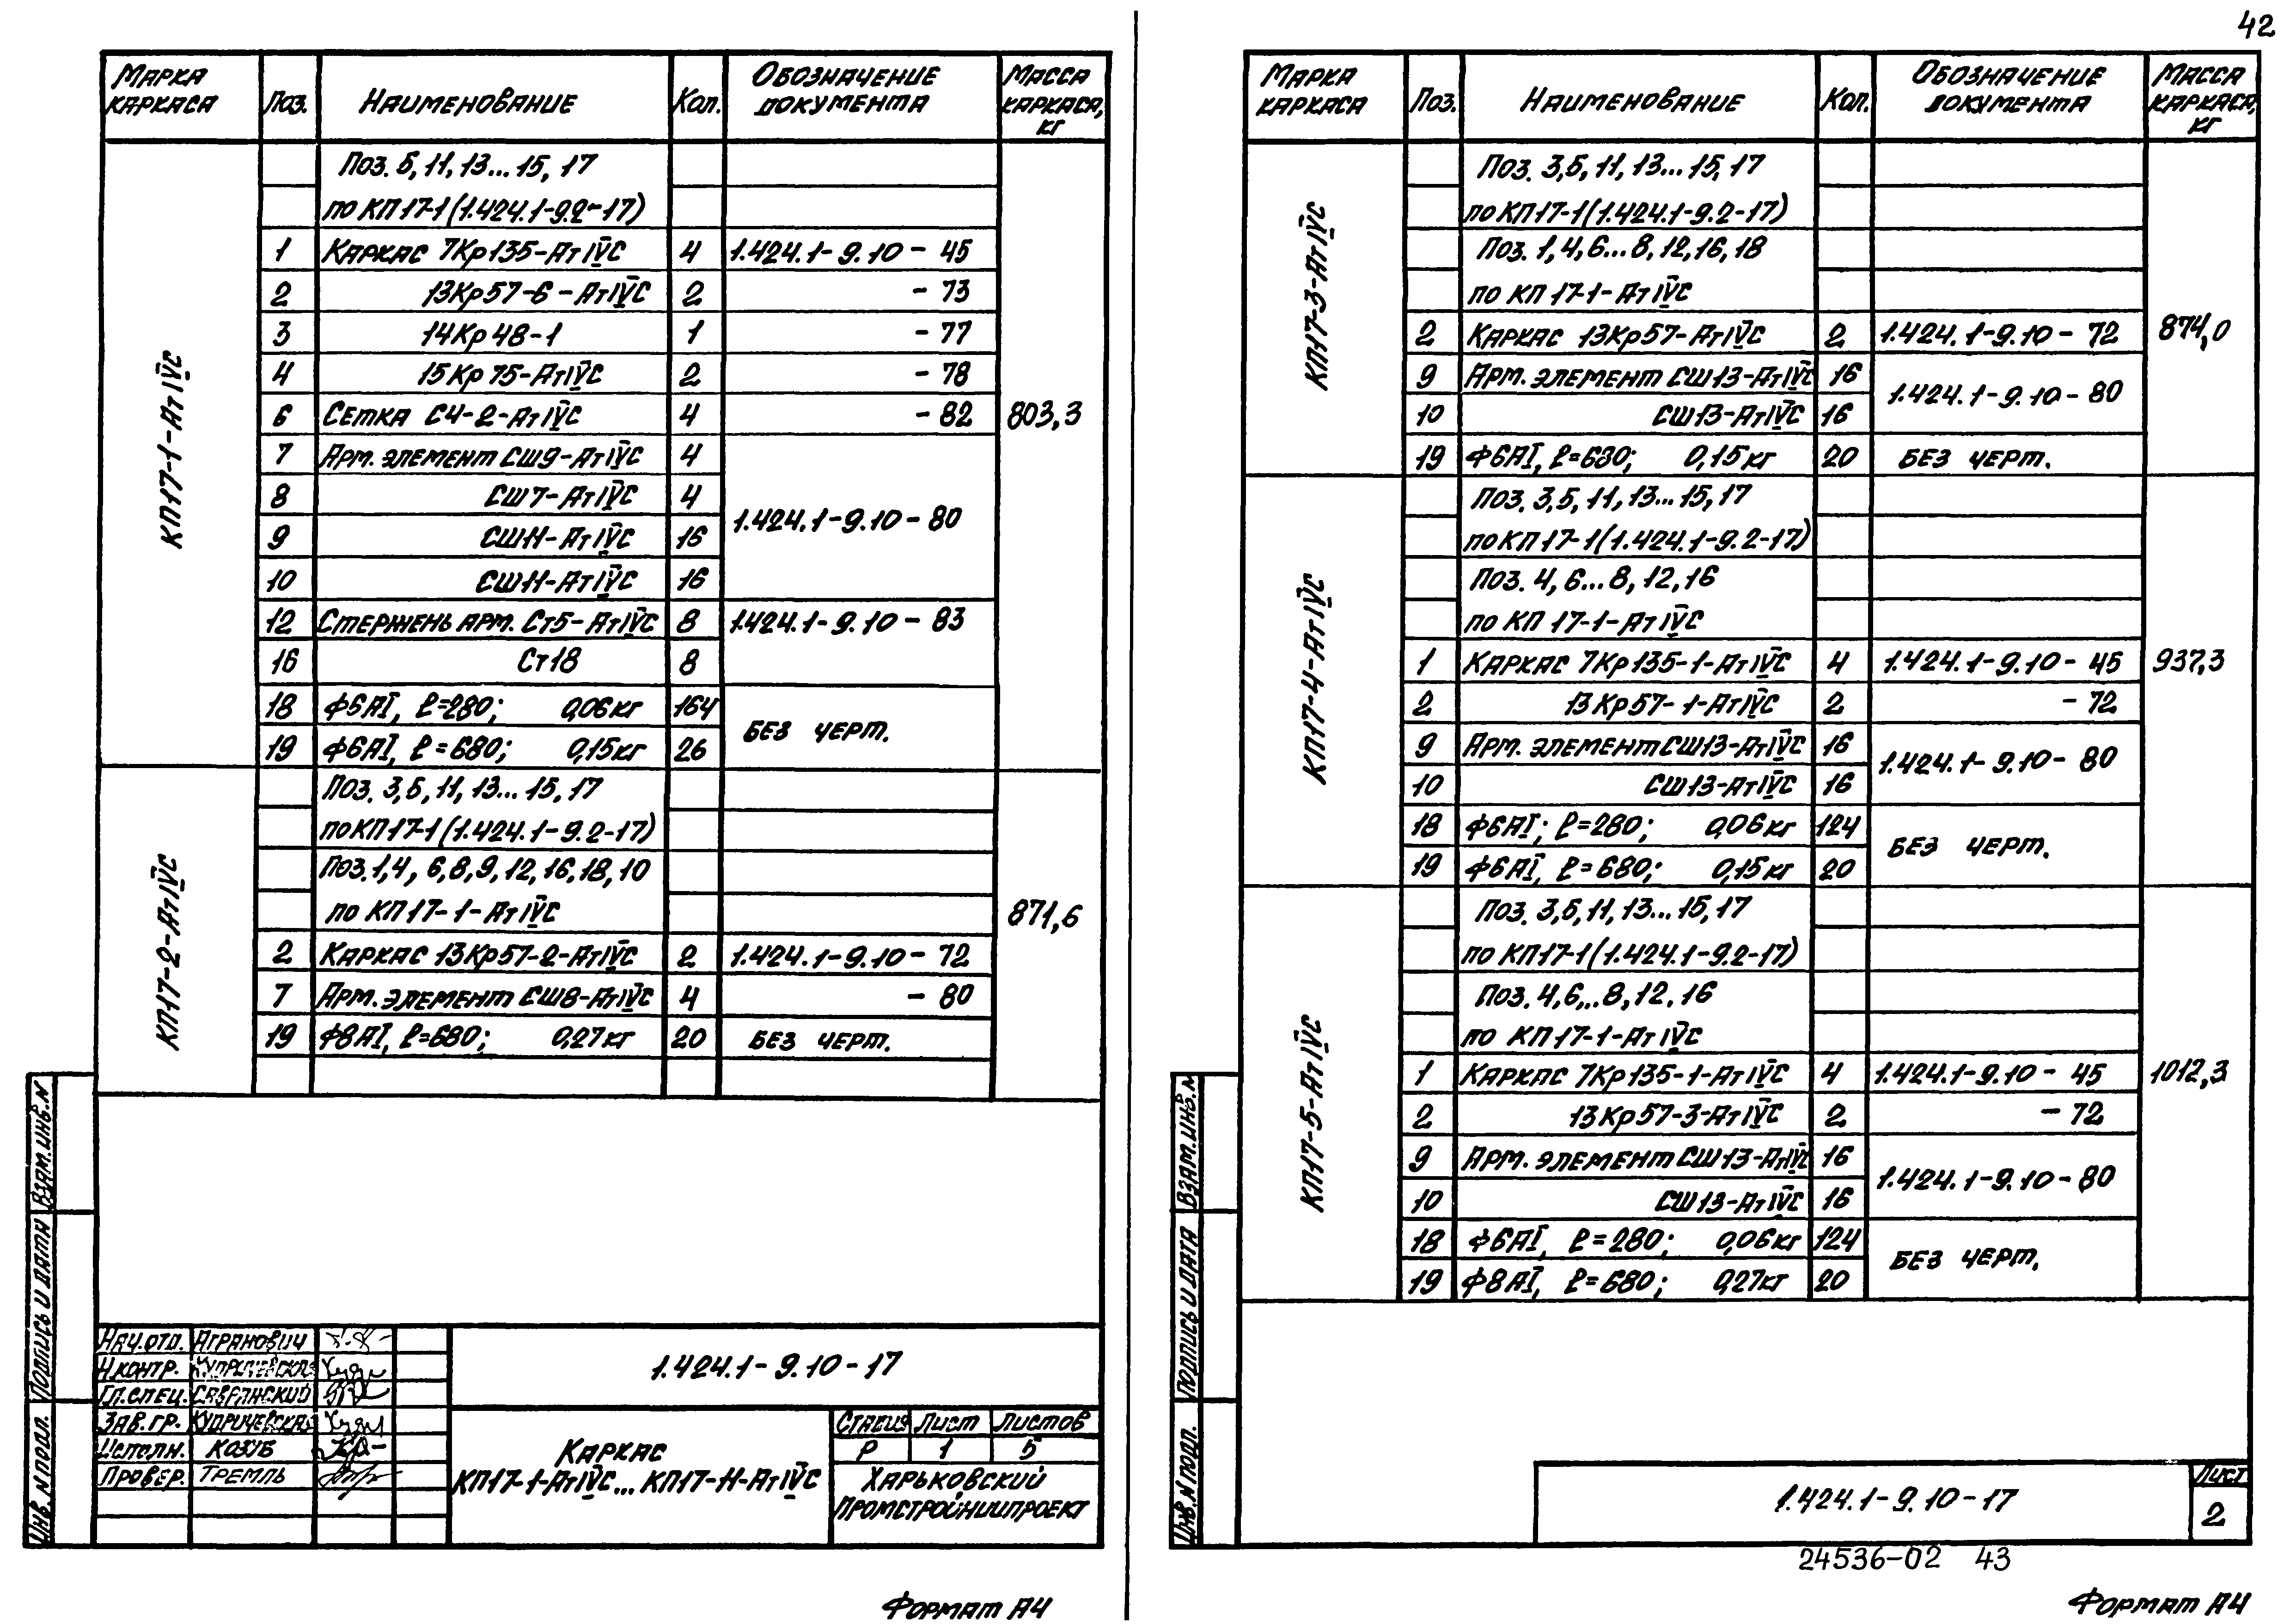 42
Марка каркаса | Поз. | Наименование | Кол. | Обозначение документа | Масса каркаса, кг
КП17-1-АтIVС
Поз. 5, 11, 13... 15, 17
по КП17-1 (1.424.1-9.2-17)
1 | Каркас 7Кр135-АтIVС | 4 | 1.424.1-9.10-45
2 | 13Кр57-6-АтIVС | 2 | -73
3 | 14Кр48-1 | 1 | -77
4 | 15Кр75-АтIVС | 2 | -78
6 | Сетка С4-2-АтIVС | 4 | -82 | 803,3
7 | Арм. элемент СШ9-АтIVС | 4
8 | СШ7-АтIVС | 4
1.424.1-9.10-80
9 | СШ11-АтIVС | 16
10 | СШ11-АтIVС | 16
12 | Стержень арм. Ст5-АтIVС | 8 | 1.424.1-9.10-83
16 | Ст18 | 8
18 | Ф6АI, ℓ=280; 0,06кг | 164
без черт.
19 | Ф6АI, ℓ=680; 0,15кг | 26
КП17-2-АтIVС
Поз. 3,5, 11, 13... 15, 17
по КП17-1 (1.424.1-9.2-17)
Поз. 1,4, 6,8,9, 12, 16, 18, 10
по КП17-1-АтIVС
871,6
2 | Каркас 13Кр57-2-АтIVС | 2 | 1.424.1-9.10-72
7 | Арм. элемент СШ8-АтIVС | 4 | -80
19 | Ф8АI, ℓ=680; 0,27кг | 20 | без черт.
Взам.инв.N
Подпись и дата
Инв.N подл.
Нач.отд. Агранович
Н.контр. Купричевская
Гл.спец. Савранский
Зав.гр. Купричевская
Исполн. Козуб
Провер. Тремль
1.424.1-9.10-17
Каркас
КП17-1-АтIVС... КП17-11-АтIVС
Стадия | Лист | Листов
Р | 1 | 5
Харьковский
Промстройниипроект
Формат А4
Марка каркаса | Поз. | Наименование | Кол. | Обозначение документа | Масса каркаса, кг
КП17-3-АтIVС
Поз. 3,5, 11, 13... 15, 17
по КП17-1 (1.424.1-9.2-17)
Поз. 1,4, 6... 8, 12, 16, 18
по КП17-1-АтIVС
2 | Каркас 13Кр57-АтIVС | 2 | 1.424.1-9.10-72 | 874,0
9 | Арм. элемент СШ13-АтIVС | 16
1.424.1-9.10-80
10 | СШ13-АтIVС | 16
19 | Ф6АI, ℓ=680; 0,15кг | 20 | без черт.
КП17-4-АтIVС
Поз. 3,5, 11, 13... 15, 17
по КП17-1 (1.424.1-9.2-17)
Поз. 4, 6... 8, 12, 16
по КП17-1-АтIVС
1 | Каркас 7Кр135-1-АтIVС | 4 | 1.424.1-9.10-45 | 937,3
2 | 13Кр57-1-АтIVС | 2 | -72
9 | Арм. элемент СШ13-АтIVС | 16
1.424.1-9.10-80
10 | СШ13-АтIVС | 16
18 | Ф6АI; ℓ=280; 0,06кг | 124
без черт.
19 | Ф6АI, ℓ=680; 0,15кг | 20
КП17-5-АтIVС
Поз. 3,5, 11, 13... 15, 17
по КП17-1 (1.424.1-9.2-17)
Поз. 4, 6... 8, 12, 16
по КП17-1-АтIVС
1 | Каркас 7Кр135-1-АтIVС | 4 | 1.424.1-9.10-45 | 1012,3
2 | 13Кр57-3-АтIVС | 2 | -72
9 | Арм. элемент СШ13-АтIVС | 16
1.424.1-9.10-80
10 | СШ13-АтIVС | 16
18 | Ф6АI, ℓ=280; 0,06кг | 124
без черт.
19 | Ф8АI, ℓ=680; 0,27кг | 20
Взам.инв.N
Подпись и дата
Инв.N подл.
1.424.1-9.10-17
Лист
2
24536-02 43
Формат А4